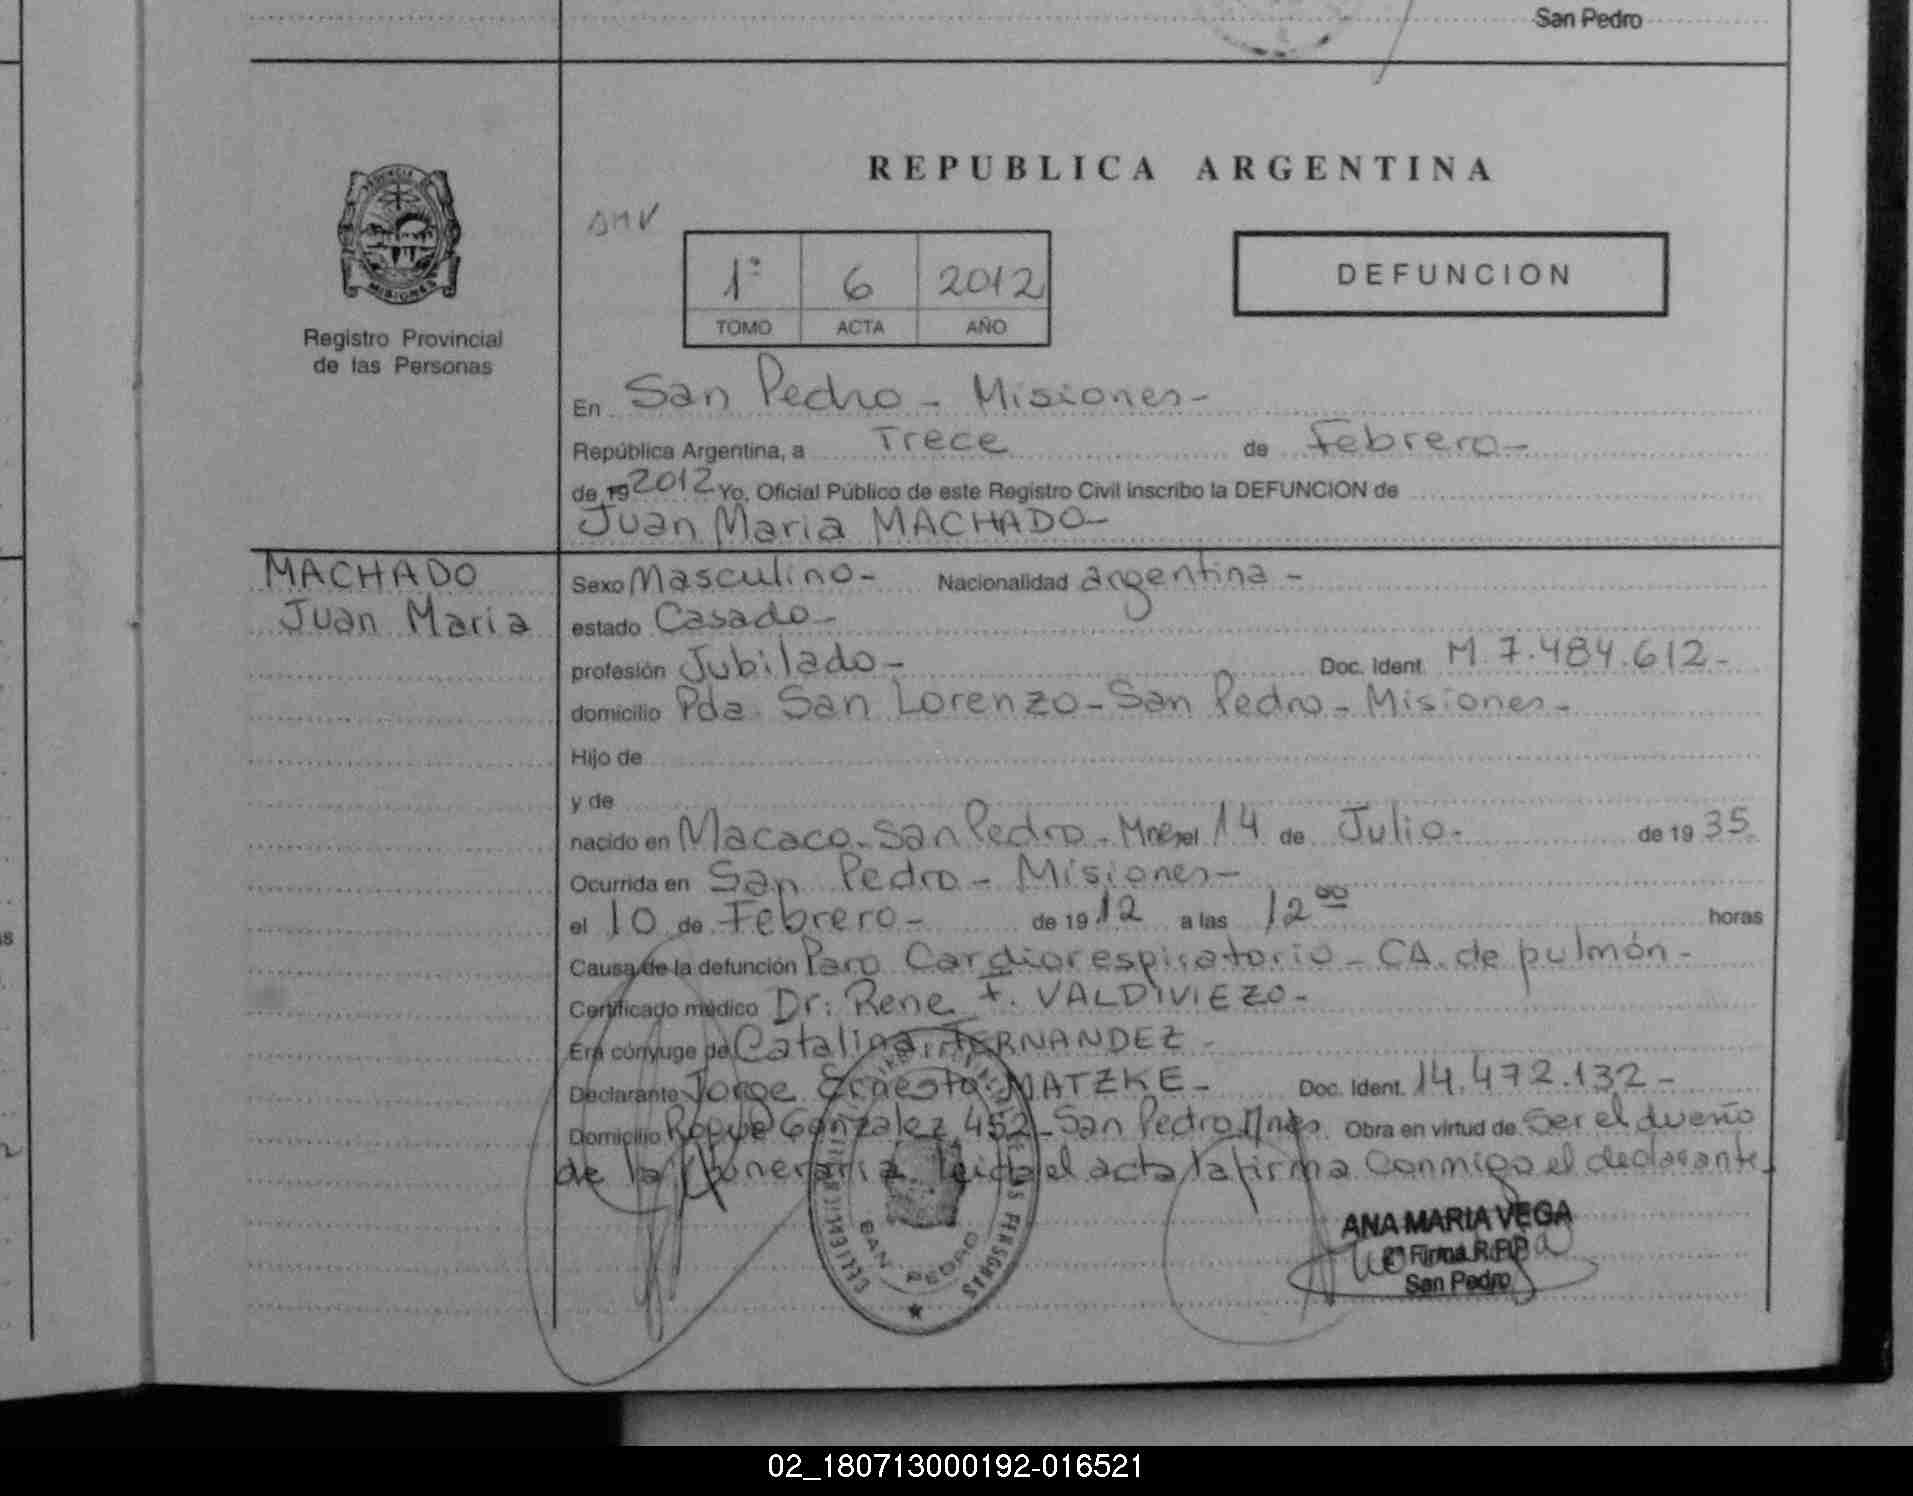 San Pedro
REPUBLICA ARGENTINA
AMV
1º 6 2012
TOMO ACTA AÑO
DEFUNCION
PROVINCIA DE
MISIONES
Registro Provincial
de las Personas
En San Pedro - Misiones -
República Argentina, a Trece de Febrero -
de 19 2012 Yo, Oficial Público de este Registro Civil inscribo la DEFUNCION de
Juan Maria MACHADO -
MACHADO
Juan Maria
Sexo Masculino - Nacionalidad argentina -
estado Casado -
profesión Jubilado - Doc. Ident. M. 7.484.612 -
domicilio Pda. San Lorenzo - San Pedro - Misiones -
Hijo de
y de
nacido en Macaco - San Pedro - Mnes el 14 de Julio - de 19 35
Ocurrida en San Pedro - Misiones -
el 10 de Febrero - de 19 12 a las 12 00 horas
Causa de la defunción Paro Cardiorespiratorio - CA. de pulmón -
Certificado médico Dr: Rene F. VALDIVIEZO -
Era cónyuge de Catalina FERNANDEZ -
Declarante Jorge Ernesto MATZKE - Doc. Ident. 14.472.132 -
Domicilio Roque Gonzalez 452 - San Pedro Mnes Obra en virtud de Ser el dueño
de la funeraria leida el acta la firma conmigo el declarante.
DE LAS PERSONAS
SAN PEDRO
ANA MARIA VEGA
2º Firma R.P.P
San Pedro
02_180713000192-016521